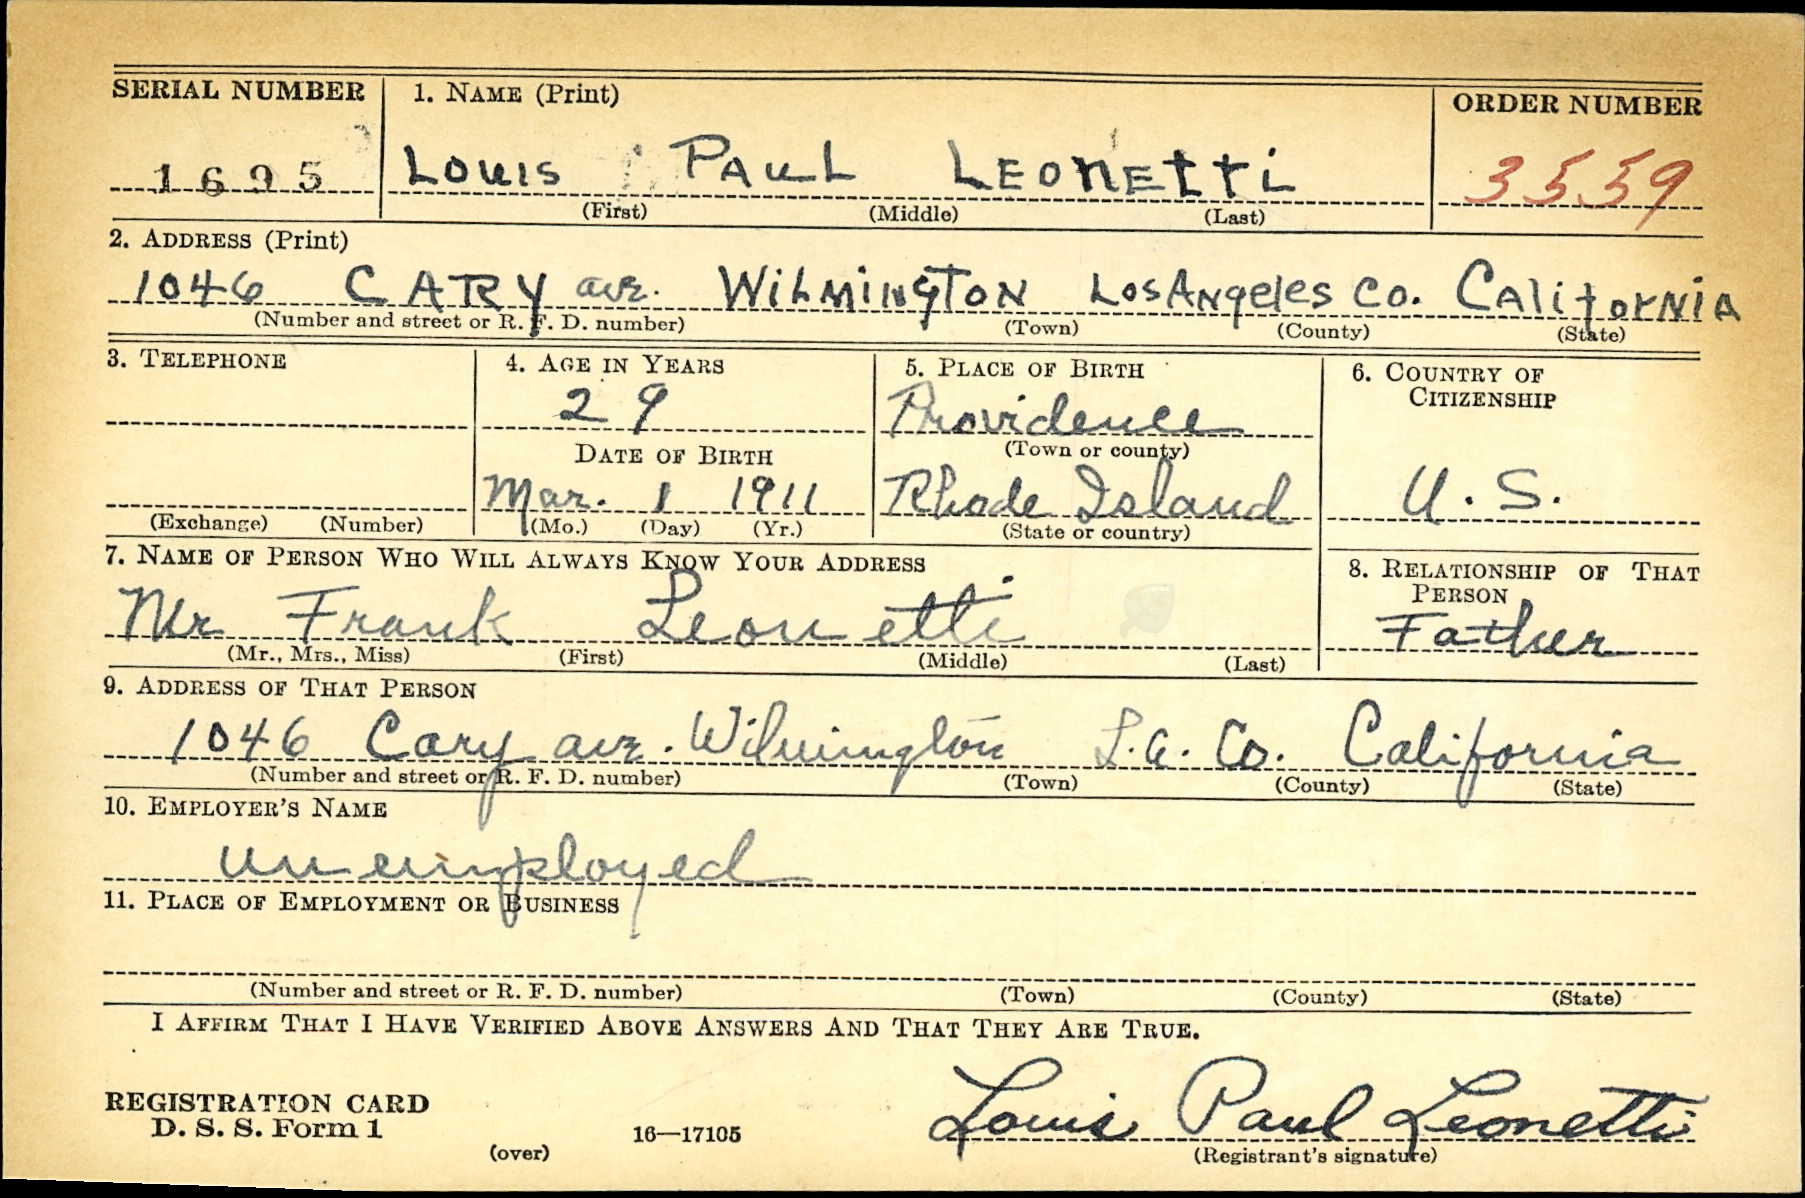 SERIAL NUMBER 1. NAME (Print) ORDER NUMBER
1695 LOUIS PAUL LEONETTI 3559
(First) (Middle) (Last)
2. ADDRESS (Print)
1046 CARY ave. WILMINGTON Los Angeles Co. CALifORNIA
(Number and street or R. F. D. number) (Town) (County) (State)
3. TELEPHONE 4. AGE IN YEARS 5. PLACE OF BIRTH 6. COUNTRY OF
CITIZENSHIP
29 Providence
DATE OF BIRTH (Town or county)
Mar. 1 1911 Rhode Island U. S.
(Exchange) (Number) (Mo.) (Day) (Yr.) (State or country)
7. NAME OF PERSON WHO WILL ALWAYS KNOW YOUR ADDRESS 8. RELATIONSHIP OF THAT
PERSON
Mr Frank Leonetti Father
(Mr., Mrs., Miss) (First) (Middle) (Last)
9. ADDRESS OF THAT PERSON
1046 Cary ave. Wilmington L.A. Co. California
(Number and street or R. F. D. number) (Town) (County) (State)
10. EMPLOYER'S NAME
unemployed
11. PLACE OF EMPLOYMENT OR BUSINESS
(Number and street or R. F. D. number) (Town) (County) (State)
I AFFIRM THAT I HAVE VERIFIED ABOVE ANSWERS AND THAT THEY ARE TRUE.
REGISTRATION CARD
D. S. S. Form 1 16—17105 Louis Paul Leonetti
(over) (Registrant's signature)